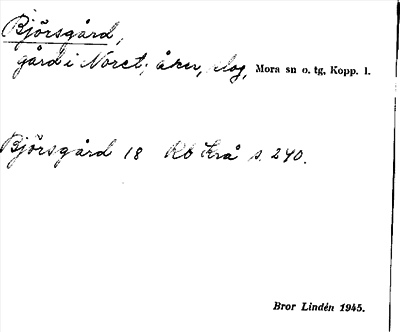 Björsgård,
gård i Noret; åker, skog, Mora sn o. tg, Kopp. l.
Björsgård 18 Rb Krå s. 240.
Bror Lindén 1945.